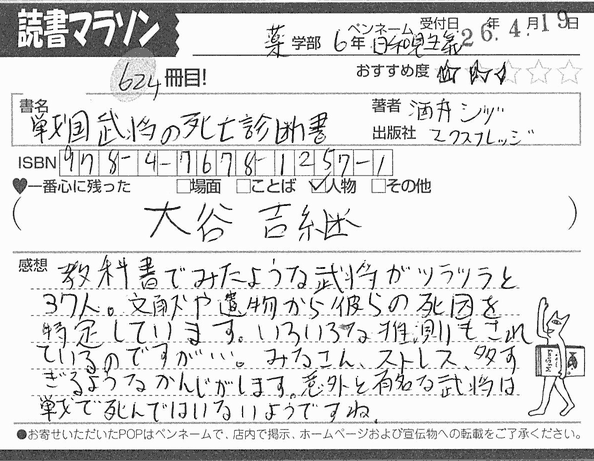 読書マラソン
薬 学部 6年 ペンネーム 日和見主義 受付日 26年 4月 19日
624冊目! おすすめ度 ☆☆☆☆☆
書名 戦国武将の死亡診断書
著者 酒井シヅ
出版社 エクスナレッジ
ISBN 978-4-7678-1257-1
♥一番心に残った □場面 □ことば ☑人物 □その他
(大谷吉継)
感想 教科書でみたような武将がツラツラと
37人。文献や遺物から彼らの死因を
特定しています。いろいろな推測もされ
ているのですが…。みなさん、ストレス、多す
ぎるようなかんじがします。意外と有名な武将は
戦で死んではいないようですね。
●お寄せいただいたPOPはペンネームで、店内で掲示、ホームページおよび宣伝物への転載をご了承ください。